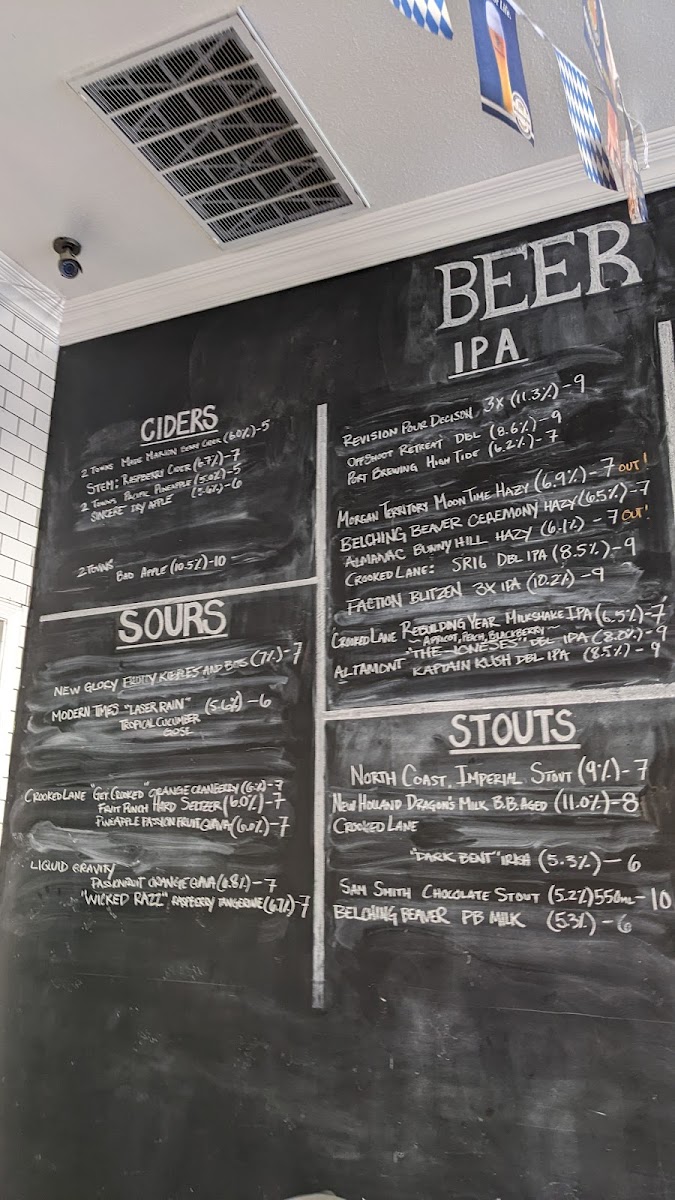 Life.
BEER
IPA
REVISION POUR DECISON 3X (11.3%)-9
OFFSHOOT RETREAT DBL (8.6%)-9
PORT BREWING HIGH TIDE (6.2%)-7
MORGAN TERRITORY MOONTIME HAZY (6.9%)-7 OUT!
BELCHING BEAVER CEREMONY HAZY (6.5%)-7
ALMANAC BUNNY HILL HAZY (6.1%) -7 OUT!
CROOKED LANE: SR16 DBL IPA (8.5%)-9
FACTION BLITZEN 3X IPA (10.2%) -9
CROOKED LANE REBUILDING YEAR MILKSHAKE IPA (6.5%)-7
~APRICOT, PEACH, BLACKBERRY
"THE JONESES" DBL IPA (8.2%)-9
ALTAMONT KAPTAIN KUSH DBL IPA (8.5%) -9
CIDERS
2 TOWNS MADE MARION BERRY CIDER (6.0%)-5
STEM: RASPBERRY CIDER (6.7%)-7
2 TOWNS PACIFIC PINEAPPLE (5.0%)-5
SINCERE DRY APPLE (5.6%)-6
2 TOWNS BAD APPLE (10.5%)-10
SOURS
NEW GLORY FRUITY AND BITS (7%)-7
MODERN TIMES "LASER RAIN" (5.6%) -6
TROPICAL CUCUMBER
GOSE
CROOKED LANE "GET CROOKED" ORANGE CRANBERRY -7
FRUIT PUNCH HARD SELTZER (6.0%)-7
PINEAPPLE PASSION FRUIT GUAVA (6.0%)-7
LIQUID GRAVITY
PASSIONFRUIT ORANGE GUAVA (6.8%)-7
"WICKED RAZZ" RASPBERRY TANGERINE (6.7%)-7
STOUTS
NORTH COAST IMPERIAL STOUT (9%)-7
NEW HOLLAND DRAGON'S MILK B.B. AGED (11.0%)-8
CROOKED LANE
"DARK BENT" IRISH (5.3%)-6
SAM SMITH CHOCOLATE STOUT (5.2%) 550mL-10
BELCHING BEAVER PB MILK (5.3%)-6